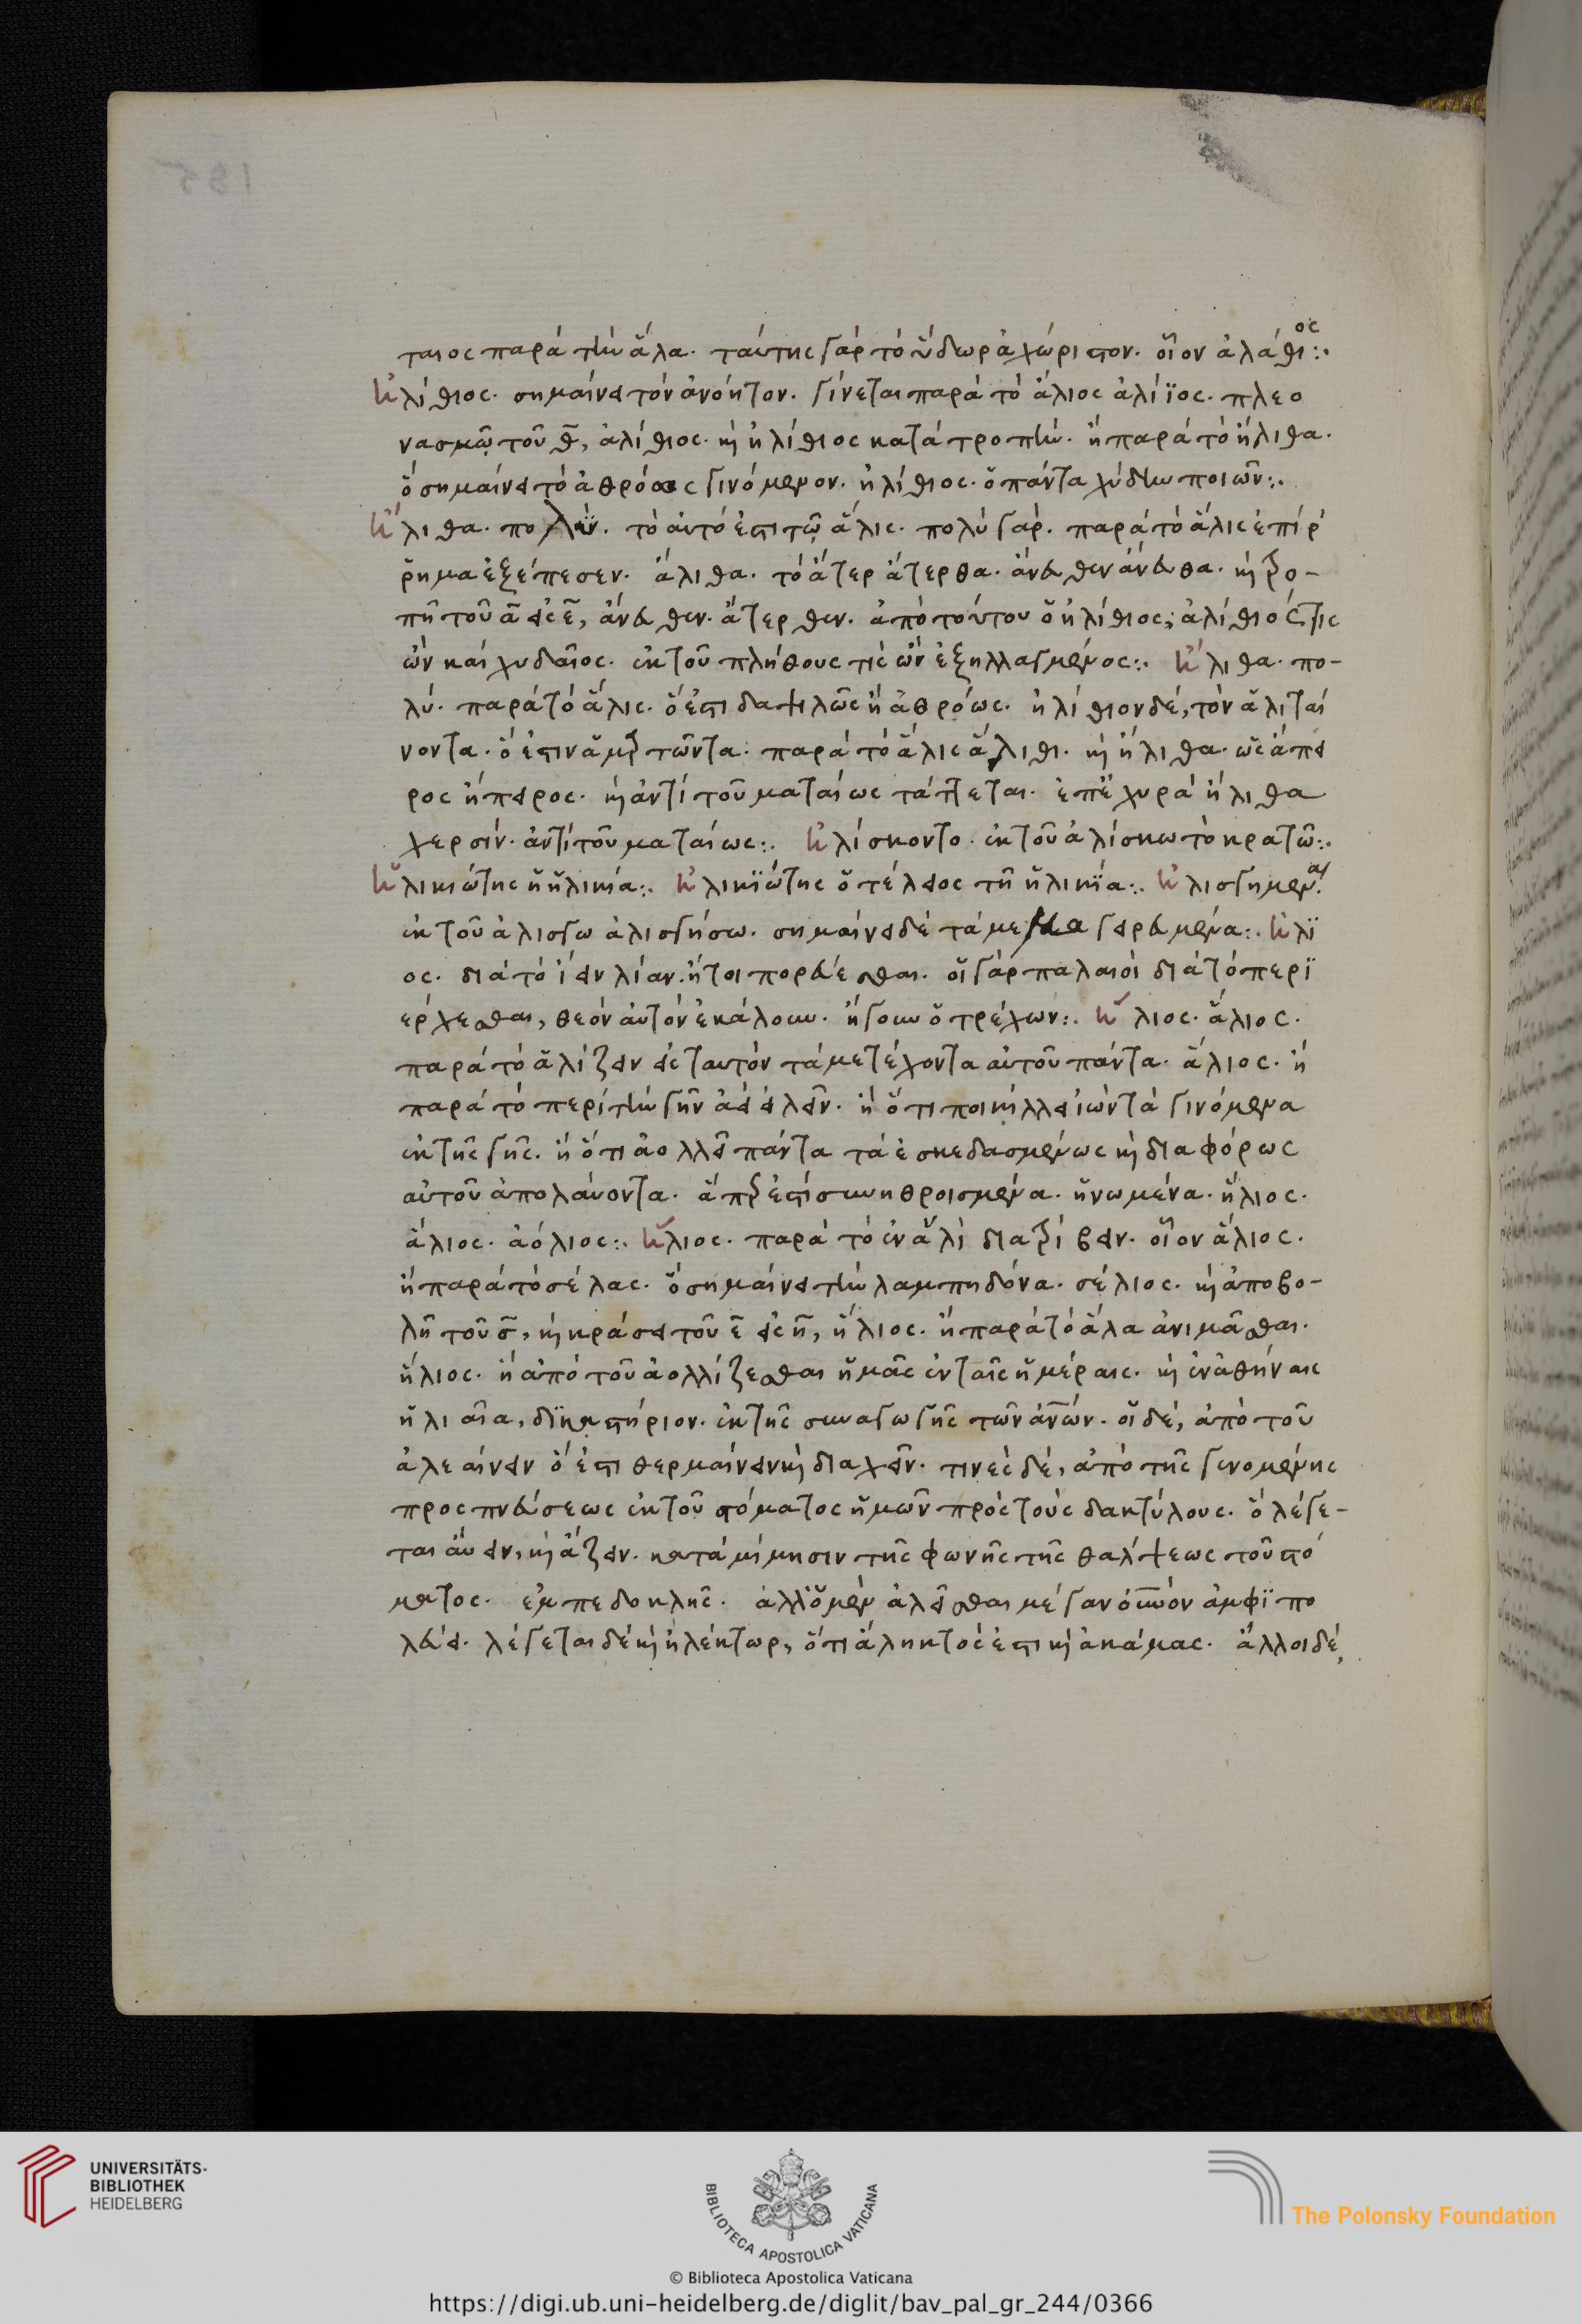 ταιος παρὰ τὴν ἅλα. ταύτης γὰρ τὸ ὕδωρ ἀχώριστον. οἷον ἀλάθιος:.
Ἠλίθιος. σημαίνει τὸν ἀνόητον. γίνεται παρὰ τὸ ἅλιος ἁλίϊος. πλεο
νασμῷ τοῦ θ̄, ἀλίθιος. καὶ ἠλίθιος κατὰ τροπήν. ἢ παρὰ τὸ ἤλιθα.
ὃ σημαίνει τὸ ἀθρόως γινόμενον. ἠλίθιος. ὁ πάντα χύδην ποιῶν:.
Ἤλιθα. πολύ. τὸ αὐτό ἐστι τῷ ἅλις. πολὺ γάρ. παρὰ τὸ ἅλις ἐπίρ
ρημα ἐξέπεσεν. ἄλιθα. τὸ ἄτερ ἄτερθα. ἄνευθεν ἄνευθα. καὶ τρο-
πῇ τοῦ ᾱ εἰς ε̄, ἄνευθεν. ἄτερθεν. ἀπὸ τούτου ὁ ἠλίθιος, ἀλίθιός τις
ὢν καὶ χυδαῖος. ἐκ τοῦ πλήθους τὶς ὢν ἐξηλλαγμένος:. Ἤλιθα. πο-
λύ. παρὰ τὸ ἅλις. ὅ ἐστι δαψιλῶς ἢ ἀθρόως. ἠλίθιον δέ, τὸν ἀλιταί
νοντα. ὅ ἐστιν ἁμαρτῶντα. παρὰ τὸ ἅλις ἄλιθι. καὶ ἤλιθα. ὡς ἄπει
ρος ἤπειρος. καὶ ἀντὶ τοῦ ματαίως τάττεται. ἐπέχυρα ἤλιθα
χερσίν. ἀντὶ τοῦ ματαίως:. Ἡλίσκοντο. ἐκ τοῦ ἁλίσκω τὸ κρατῶ:.
Ἡλικιώτης ἡ ἡλικία:. Ἡλικϊώτης ὁ τέλειος τῇ ἡλικϊα:. Ἠλισγημέναι.
ἐκ τοῦ ἀλισγῶ ἀλισγήσω. σημαίνει δὲ τὰ μεμαγειρευμένα:. Ἥλϊ
ος. διὰ τὸ ἰέν λίαν. ἤτοι πορεύεσθαι. οἱ γὰρ παλαιοὶ διὰ τὸ περϊ
έρχεσθαι, θεὸν αὐτὸν ἐκάλουν. ἤγουν ὁ τρέχων:. Ἥλιος. ἅλιος.
παρὰ τὸ ἁλίζειν εἰς ταυτὸν τὰ μετέχοντα αὐτοῦ πάντα. ἅλιος. ἢ
παρὰ τὸ περὶ τὴν γῆν ἀεὶ εἰλεῖν. ἢ ὅτι ποικίλλει ἰὼν τὰ γινόμενα
ἐκ τῆς γῆς. ἢ ὅτι ἀολλεῖ πάντα τὰ ἐσκεδασμένως καὶ διαφόρως
αὐτοῦ ἀπολαύοντα. ἅπερ ἐστὶ συνηθροισμένα. ἡνωμένα. ἥλιος.
ἅλιος. ἀόλιος:. Ἥλιος. παρὰ τὸ ἐν ἁλὶ διατρίβειν. οἷον ἅλιος.
ἢ παρὰ τὸ σέλας. ὃ σημαίνει τὴν λαμπηδόνα. σέλιος. καὶ ἀποβο-
λῇ τοῦ σ̄, καὶ κράσει τοῦ ε̄ εἰς η̄, ἥλιος. ἢ παρὰ τὸ ἅλα ἀνιμᾶσθαι.
ἥλιος. ἢ ἀπὸ τοῦ ἀολλίζεσθαι ἡμᾶς ἐν ταῖς ἡμέραις. καὶ ἐν ἀθήναις
ἡλιαῖα, δϊκαστήριον. ἐκ τῆς συναγωγῆς τῶν ἀνῶν. οἱ δέ, ἀπὸ τοῦ
ἀλεαίνειν ὅ ἐστι θερμαίνειν καὶ διαχεῖν. τινὲς δέ, ἀπὸ τῆς γενομένης
προσπνεύσεως ἐκ τοῦ στόματος ἡμῶν πρὸς τοὺς δακτύλους. ὃ λέγε-
ται αὔειν, καὶ ἄζειν. κατὰ μίμησιν τῆς φωνῆς τῆς θαλύψεως τοῦ στό
ματος. ἐμπεδοκλῆς. ἀλλ' ὁ μὲν ἀλεῖσθαι μέγαν οὐνὸν ἀμφϊπο
λεύει. λέγεται δὲ καὶ ἠλέκτωρ, ὅτι ἄληκτός ἐστι καὶ ἀκάμας. ἄλλοι δέ,
UNIVERSITÄTS-
BIBLIOTHEK
HEIDELBERG
BIBLIOTECA APOSTOLICA VATICANA
The Polonsky Foundation
© Biblioteca Apostolica Vaticana
https://digi.ub.uni-heidelberg.de/diglit/bav_pal_gr_244/0366